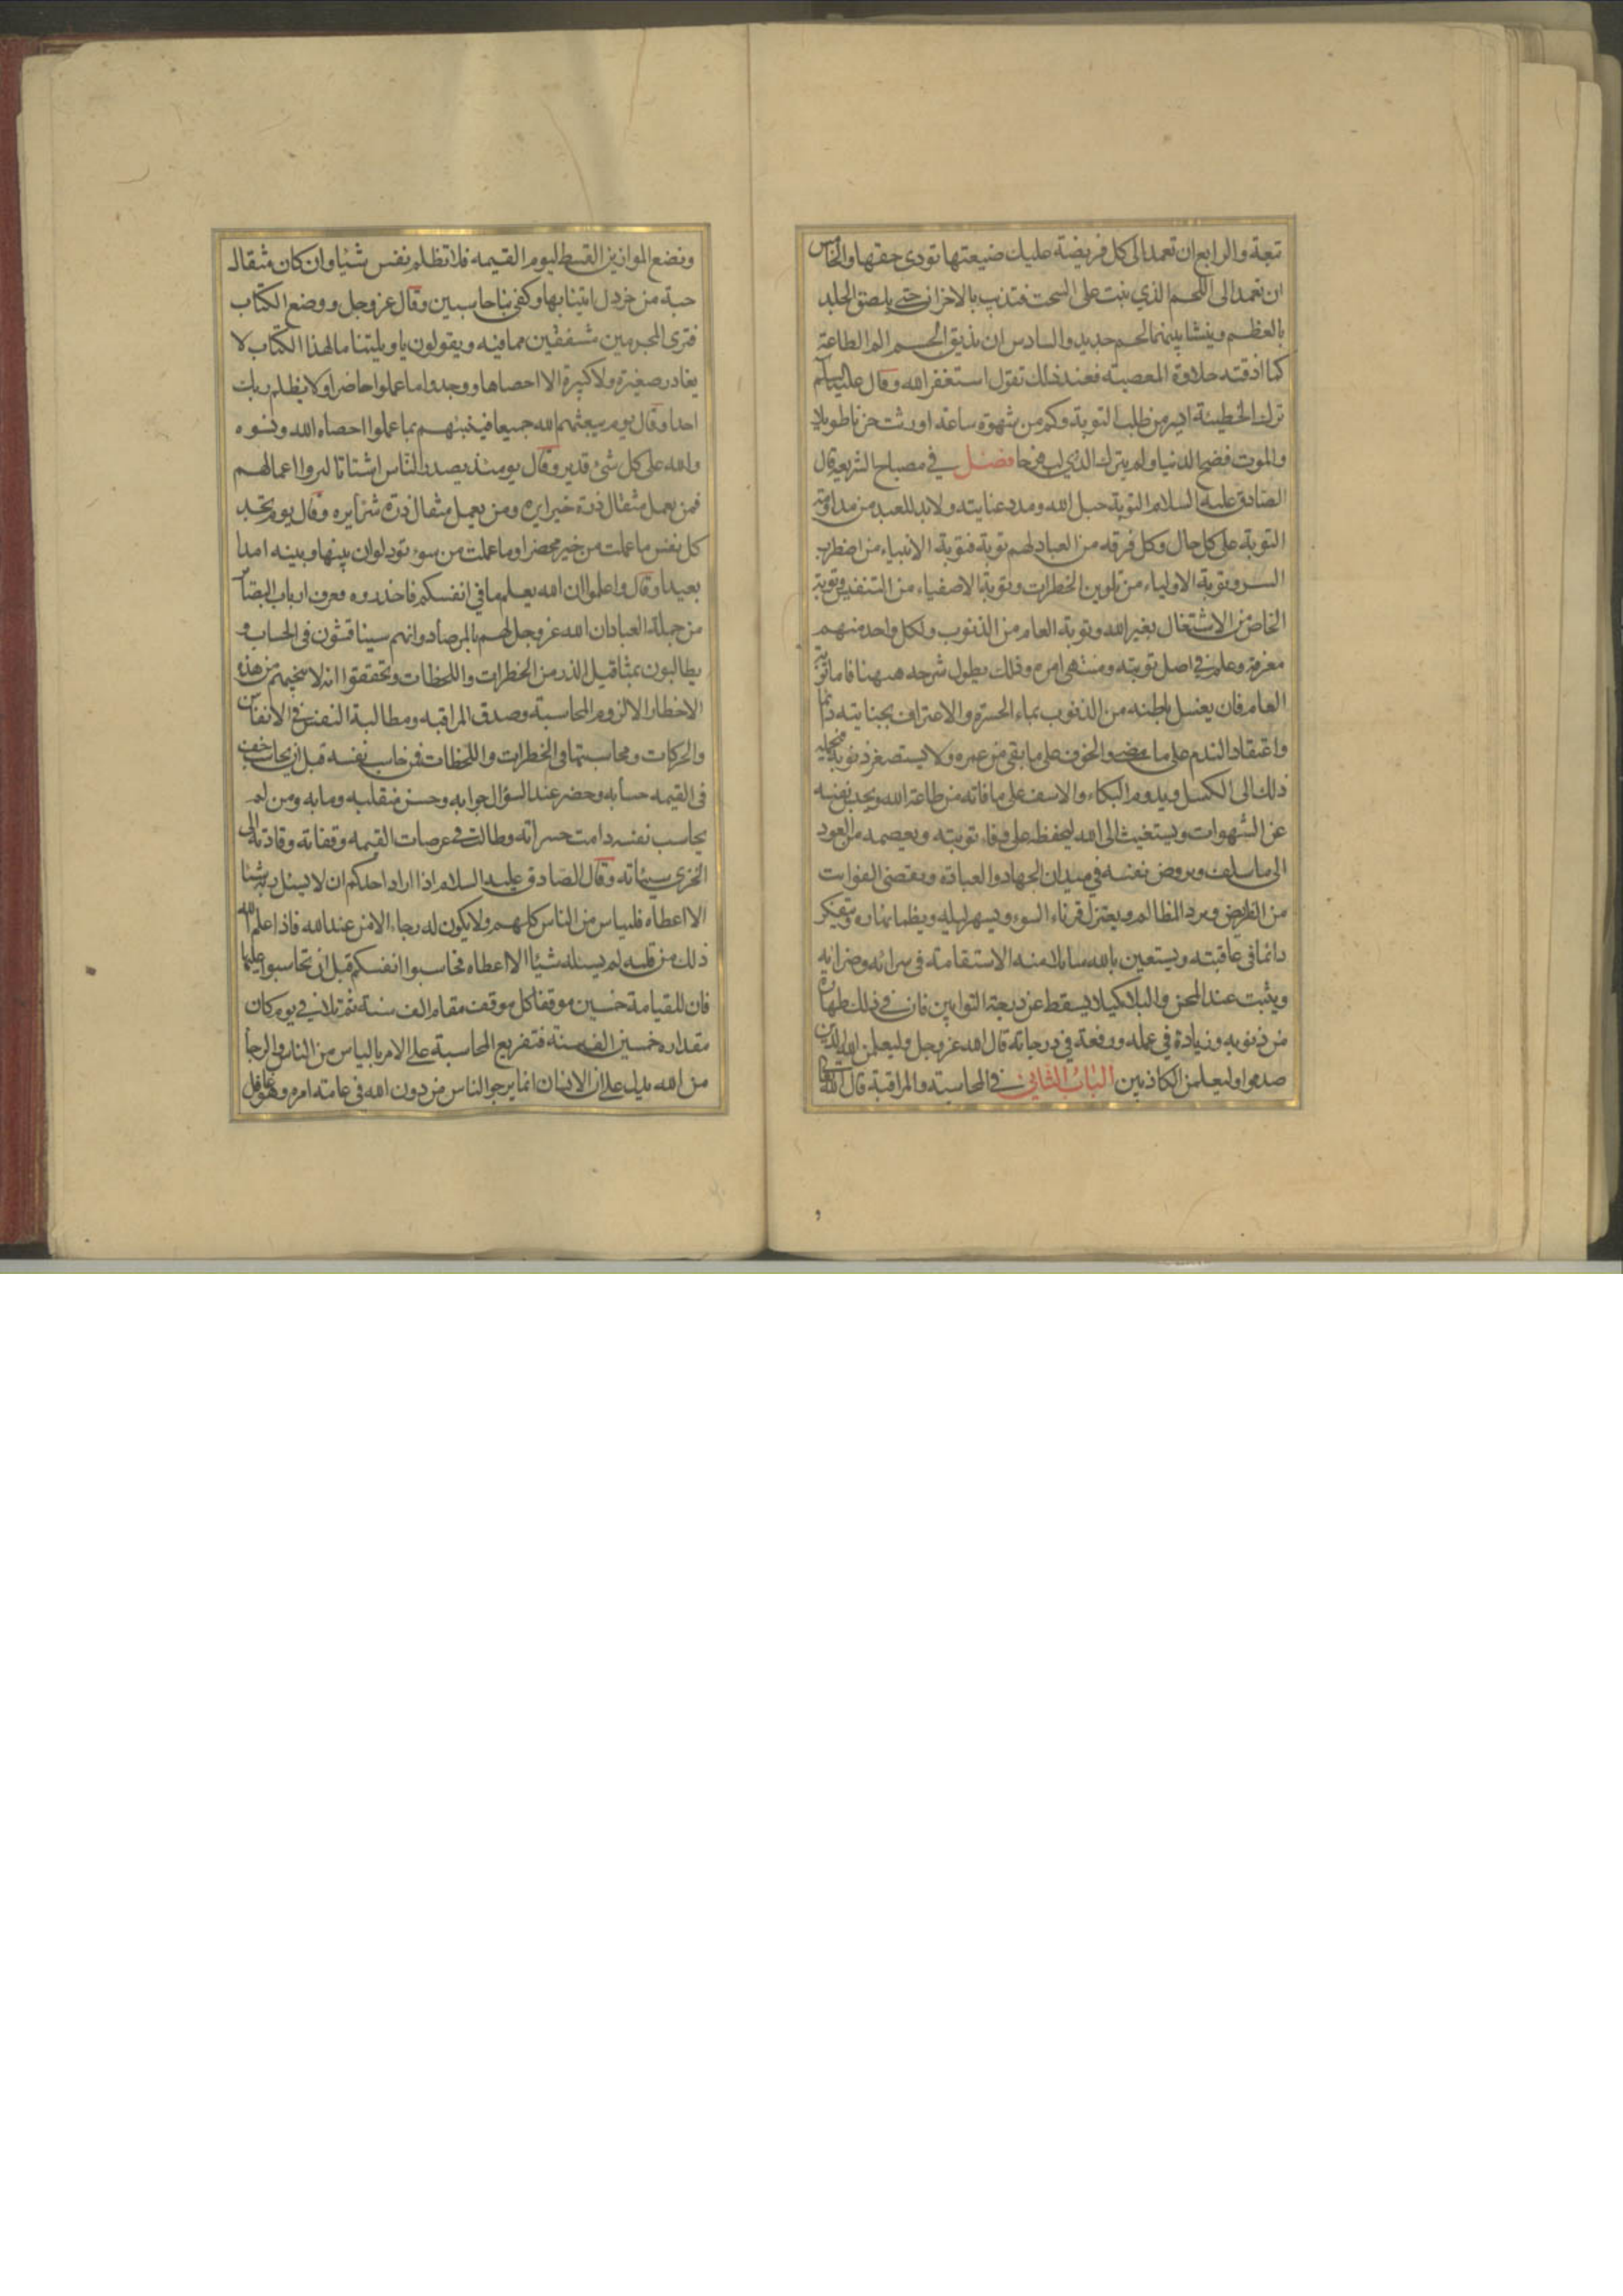 تبعة والرابع ان تعمد الى كل فريضة عليك ضيعتها تودى حقها والخامس
ان تعمد الى اللحم الذي نبت على السحت فتذيب بالاحزان حتى يلصق الجلد
بالعظم وينشا بينهما لحم جديد والسادس ان تذيق الجسم الم الطاعة
كما اذقته حلاوة المعصية فعند ذلك تقول استغفر الله وقال عليه السلم
ترك الخطيئة ايسر من طلب التوبة وكم من شهوة ساعة اورثت حزنا طويلا
والموت فضح الدنيا ولم يترك الذي لب فرحا فصل في مصباح الشريعة قال
الصادق عليه السلام التوبة حبل الله ومدد عنايته ولا بد للعبد من مداومة
التوبة على كل حال وكل فرقه من العباد لهم توبة فتوبة الانبياء من اضطراب
السر وتوبة الاولياء من تلوين الخطرات وتوبة الاصفياء من التنفيس وتوبة
الخاص من الاشتغال بغير الله وتوبة العام من الذنوب ولكل واحد منهم
معرفة وعلم في اصل توبته ومنتهى امره وذلك يطول شرحه ههنا فاما توبة
العام فان يغسل باطنه من الذنوب بماء الحسرة والاعتراف بجنايته دائما
واعتقاد الندم على ما مضى والخوف على ما بقي من عمره ولا يستصغر ذنوبه فيحمله
ذلك الى الكسل ويدوم البكاء والاسف على ما فاته من طاعة الله ويحبس نفسه
عن الشهوات ويستغيث الى الله ليحفظه على وفاء توبته ويعصمه من العود
الى ما سلف ويروض نفسه في ميدان الجهاد والعبادة ويقضى الفوايت
من الفرايض ويرد المظالم ويعتزل قرناء السوء ويسهر ليله ويظما نهاره ويتفكر
دائما في عاقبته ويستعين بالله سايلا منه الاستقامة في سرائه وضرائه
ويثبت عند المحن والبلاء كيلا يسقط عن درجة التوابين فان في ذلك طهارة
من ذنوبه وزيادة في عمله ورفعة في درجاته قال الله عز وجل وليعلمن الله الذين
صدقوا وليعلمن الكاذبين الباب الثاني في المحاسبة والمراقبة قال الله
ونضع الموازين القسط ليوم القيمه فلا تظلم نفس شيئا وان كان مثقال
حبة من خردل اتينا بها وكفى بنا حاسبين وقال عز وجل ووضع الكتاب
فترى المجرمين مشفقين مما فيه ويقولون يا ويلتنا مال هذا الكتاب لا
يغادر صغيرة ولا كبيرة الا احصاها ووجدوا ما عملوا حاضرا ولا يظلم ربك
احدا وقال يوم يبعثهم الله جميعا فينبئهم بما عملوا احصاه الله ونسوه
والله على كل شئ قدير وقال يومئذ يصدر الناس اشتاتا ليروا اعمالهم
فمن يعمل مثقال ذرة خيرا يره ومن يعمل مثقال ذرة شرا يره وقال يوم تجد
كل نفس ما عملت من خير محضرا وما عملت من سوء تود لو ان بينها وبينه امدا
بعيدا وقال واعلموا ان الله يعلم ما في انفسكم فاحذروه فعرف ارباب البصائر
من جملة العباد ان الله عز وجل لهم بالمرصاد وانهم سيناقشون في الحساب و
يطالبون بمثاقيل الذر من الخطرات واللحظات وتحققوا انه لا ينجيهم من هذه
الاخطار الا لزوم المحاسبة وصدق المراقبه ومطالبة النفس في الانفاس
والحركات ومحاسبتها في الخطرات واللحظات فمن حاسب نفسه قبل ان يحاسب خف
في القيمه حسابه وحضر عند السؤال جوابه وحسن منقلبه ومابه ومن لم
يحاسب نفسه دامت حسراته وطالت في عرصات القيمه وقفاته وقادته الى
الخزي سيئاته وقال الصادق عليه السلام اذا اراد احدكم ان لا يسئل ربه شيئا
الا اعطاه فليياس من الناس كلهم ولا يكون له رجاء الا من عند الله فاذا علم الله
ذلك من قلبه لم يسئله شيئا الا اعطاه فحاسبوا انفسكم قبل ان تحاسبوا عليها
فان للقيامة خمسين موقفا كل موقف مقام الف سنة ثم تلا في يوم كان
مقداره خمسين الف سنة فتفريع المحاسبة على الامر بالياس من الناس والرجا
من الله يدل على ان الانسان انما يرجو الناس من دون الله في عامة امره وهو غافل